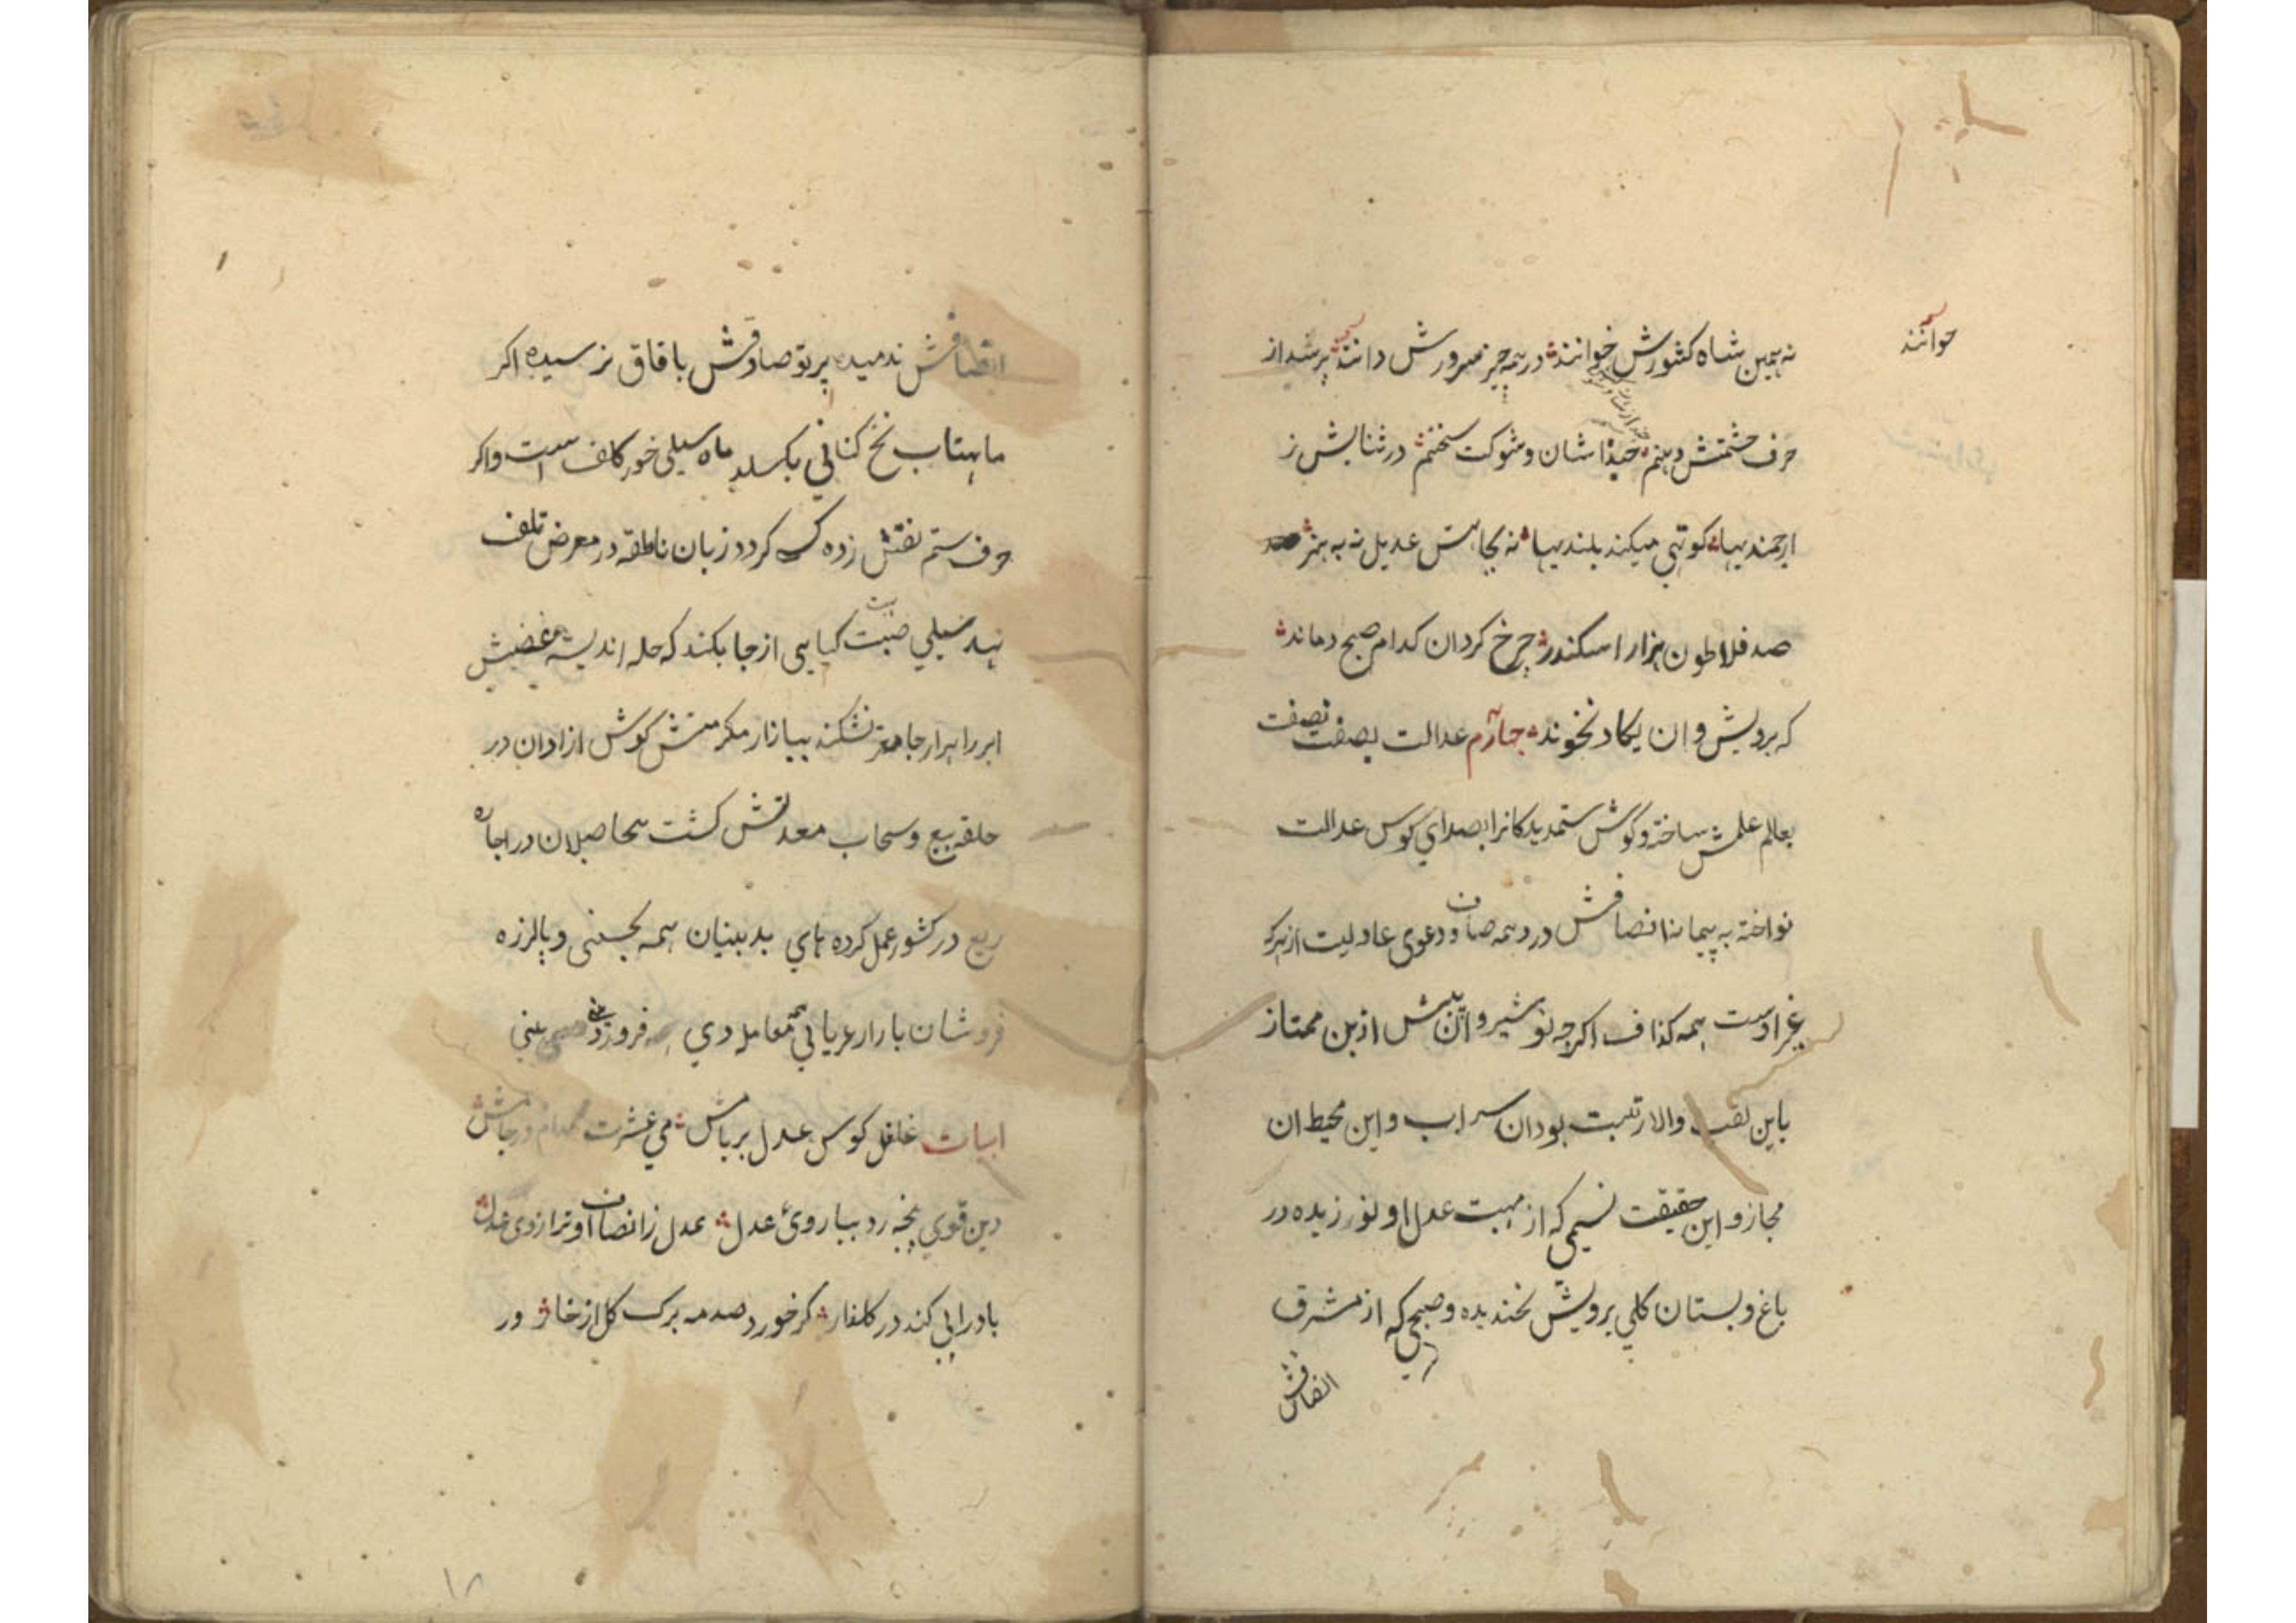 نه همین شاه کشورش خوانند در همه چیز سرورش دانند پر شد از
خوانند
حرف حشمتش دهنم حبذا شان و شوکت سخنم در ثنایش ز
ارجمندیها کوتهی میکند بلندیها نه بجاهش عدیل نه به هنر
صد فلاطون هزار اسکندر چرخ کردان کدام صبح دماند
که بردیش و ان یکاد نخوند چهارم عدالت بصفت نصفت
بعالم علمش ساخته و کوش ستمدیدکانرا بصدای کوس عدالت
نواخته به پیمانه انصافش درد همه صاف و دعوی عادلیت از هرکه
غیر اوست همه کذاف اکرچه نوشیروان پیش ازین ممتاز
باین لقب والا رتبت بود ان سراب و این محیط ان
مجاز و این حقیقت نسیمی که از مهبت عدل او نوزیده در
باغ و بستان کلی برویش نخندیده و صبحی که از مشرق
انصافش
انصافش ندمیده پرتو صادقش بافاق نرسیده اکر
ماهتاب نخ کتانی بکسلد ماه سیلی خور کلف است و اکر
حرف ستم نقش زده کردد زبان ناطقه در معرض تلف
نیند سیلی کیاهی از جا بکند که حله اندیشه غضبش
ابر را بیازار مکرمتش کوش ازادان در
حلقه بیع و سحاب معدلتش کشت بیحاصلان در اجاره
ریع در کشور عمل کرده های بدبینان همه بچستی و پالرزه
فروشان بازار عریانی معامله دی فروز
ابیات غافل کوس عدل بر بامش می عشرت مدام در جامش
دین قوی پنجه زد ببازوی عدل عدل ز انصاف او ترازوی عدل
باد را پی کند در کلفار کر خورد صدمه برک کل از خار ور
۱۸